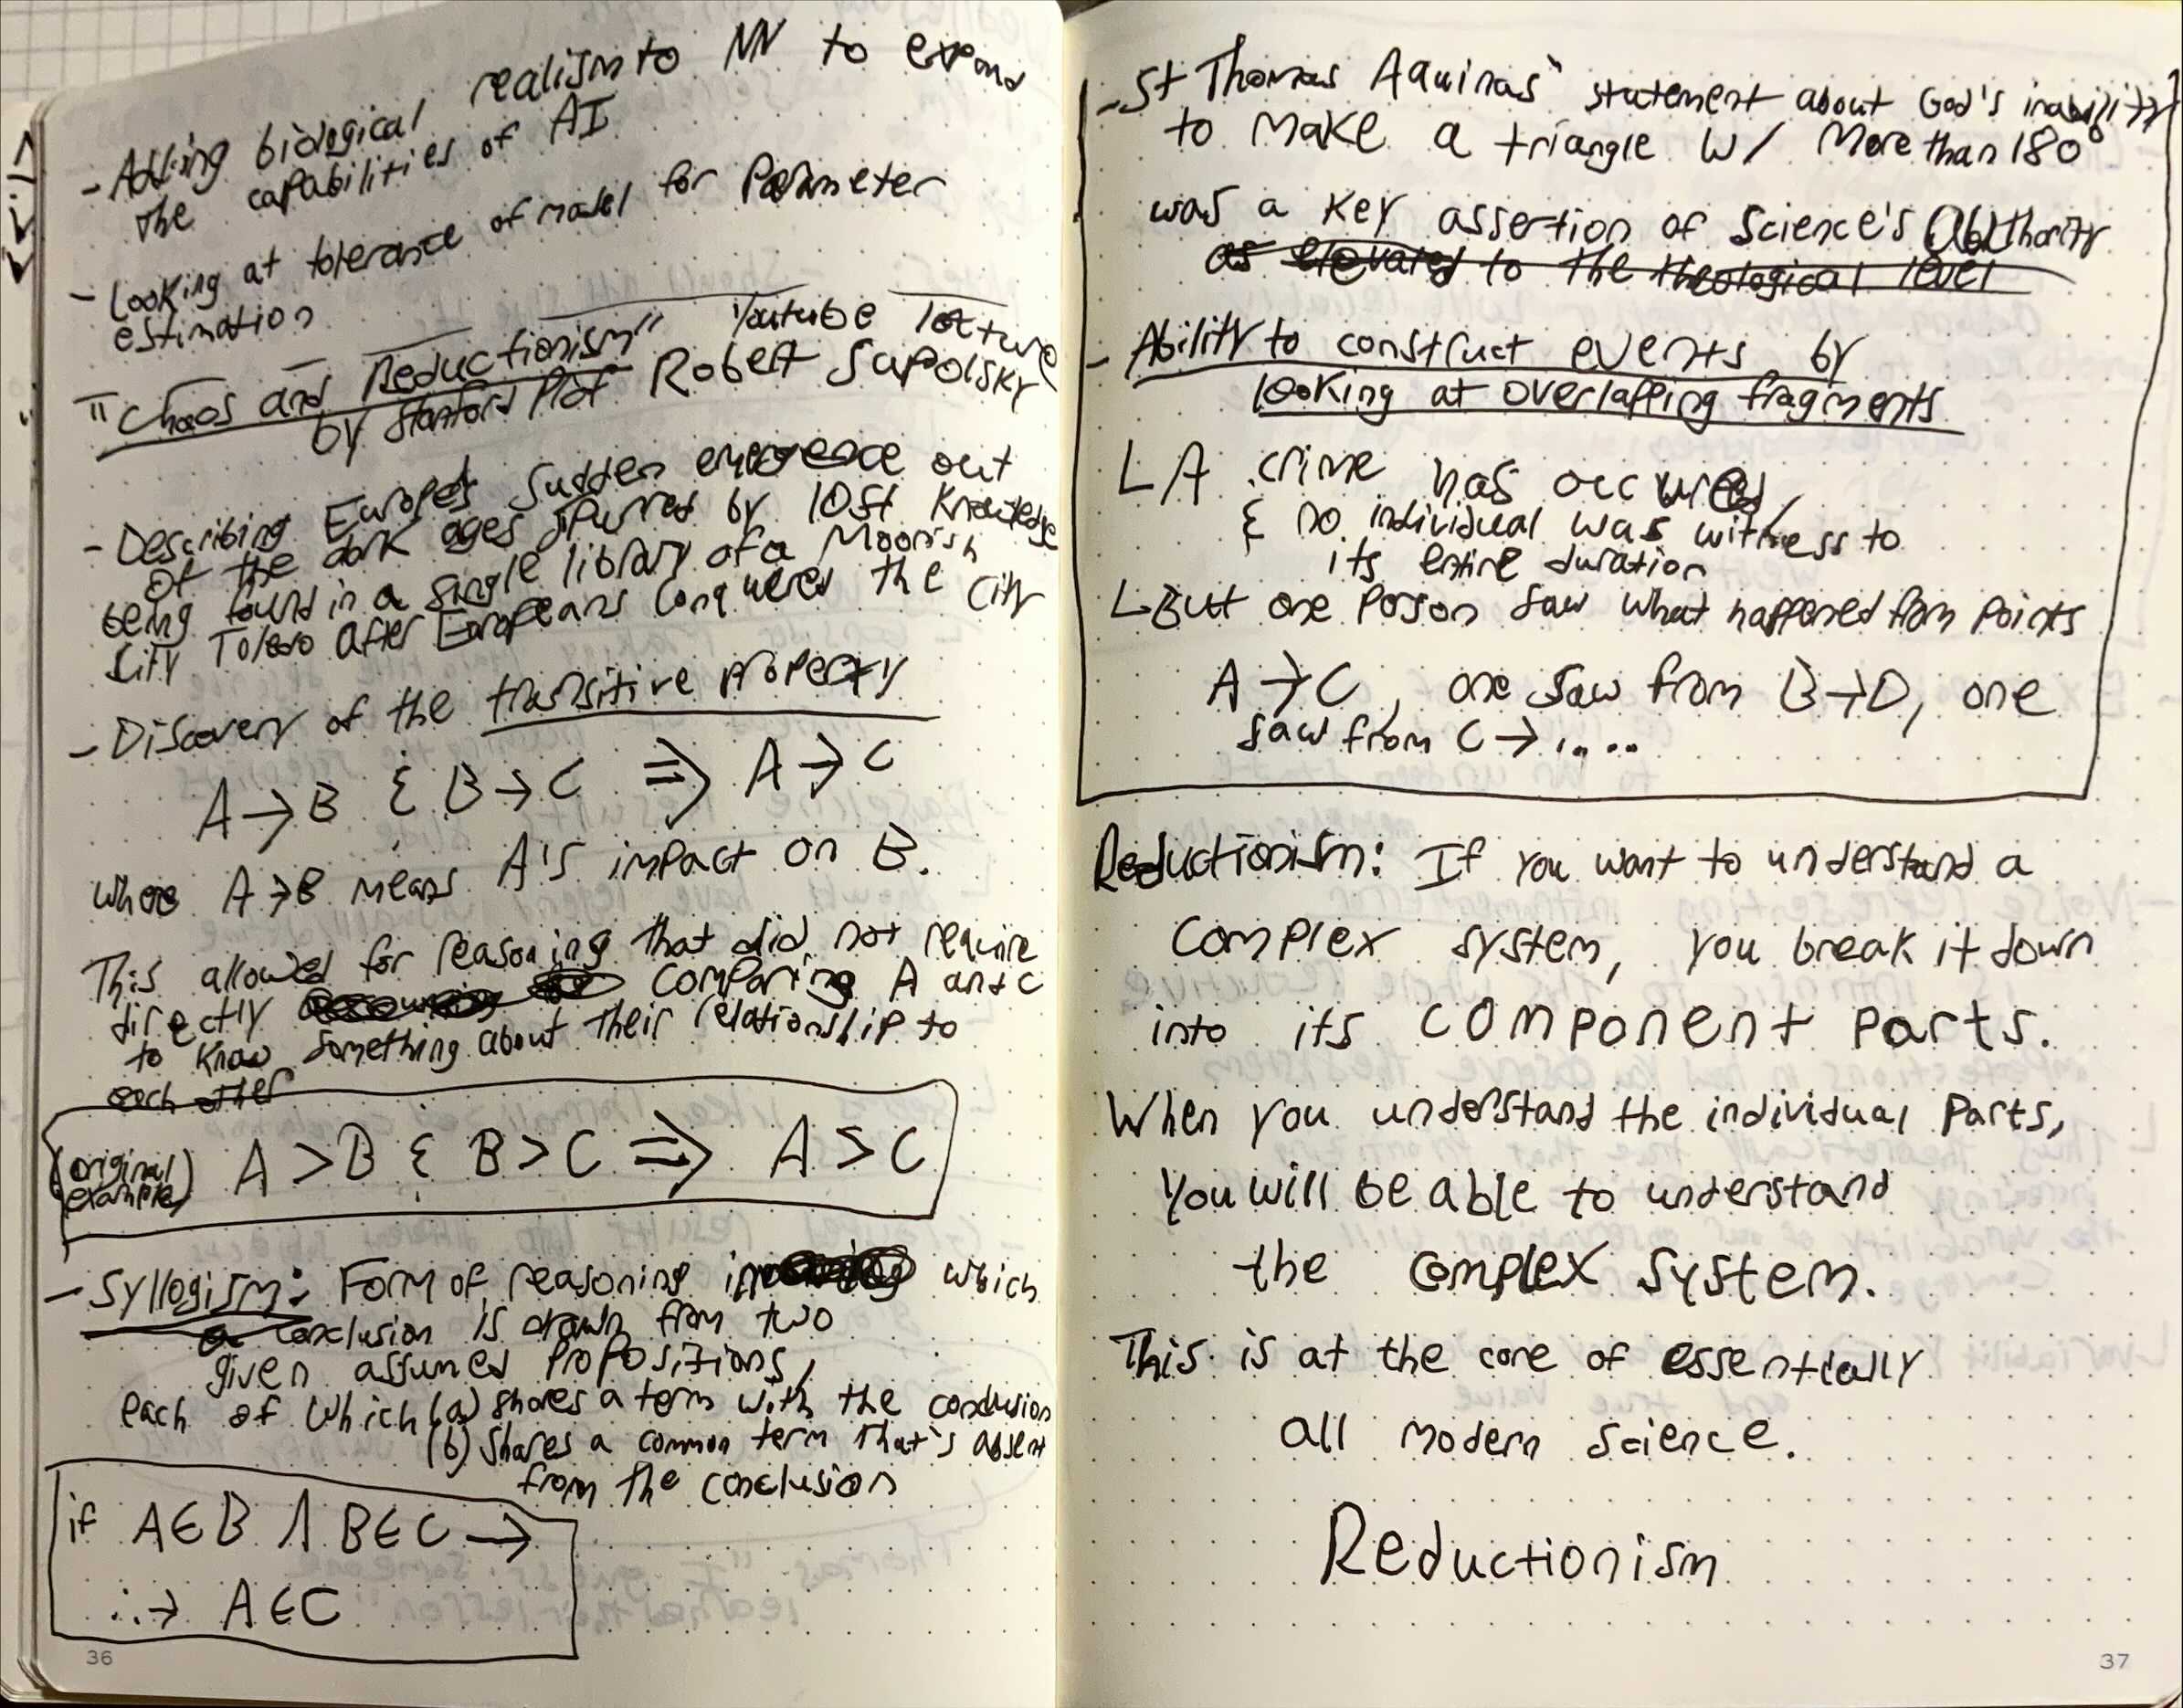 - Adding biological realism to NN to expand
the capabilities of AI
- Looking at tolerance of model for Parameter
estimation
"Chaos and Reductionism" Youtube lecture
by Stanford Prof Robert Sapolsky
- Describing Europe's sudden emergence out
of the dark ages spurred by lost knowledge
being found in a single library of a Moorish
city Toledo after Europeans conquered the city
- Discovery of the transitive property
A → B & B → C ⇒ A → C
where A → B means A's impact on B.
This allowed for reasoning that did not require
directly comparing A and C
to know something about their relationship to
each other
(original
example) A > B & B > C ⇒ A > C
- Syllogism: Form of reasoning in which
a conclusion is drawn from two
given assumed propositions,
each of which (a) shares a term with the conclusion
(b) shares a common term that's absent
from the conclusion
if A ∈ B ∧ B ∈ C →
∴→ A ∈ C
36
- St Thomas Aquinas' statement about God's inability
to make a triangle w/ more than 180°
was a key assertion of Science's Authority
as elevated to the theological level
- Ability to construct events by
looking at overlapping fragments
L A crime has occurred,
& no individual was witness to
its entire duration
L But one person saw what happened from points
A → C, one saw from B → D, one
saw from C → .....
Reductionism: If you want to understand a
complex system, you break it down
into its component parts.
When you understand the individual parts,
you will be able to understand
the complex system.
This is at the core of essentially
all modern science.
Reductionism
37